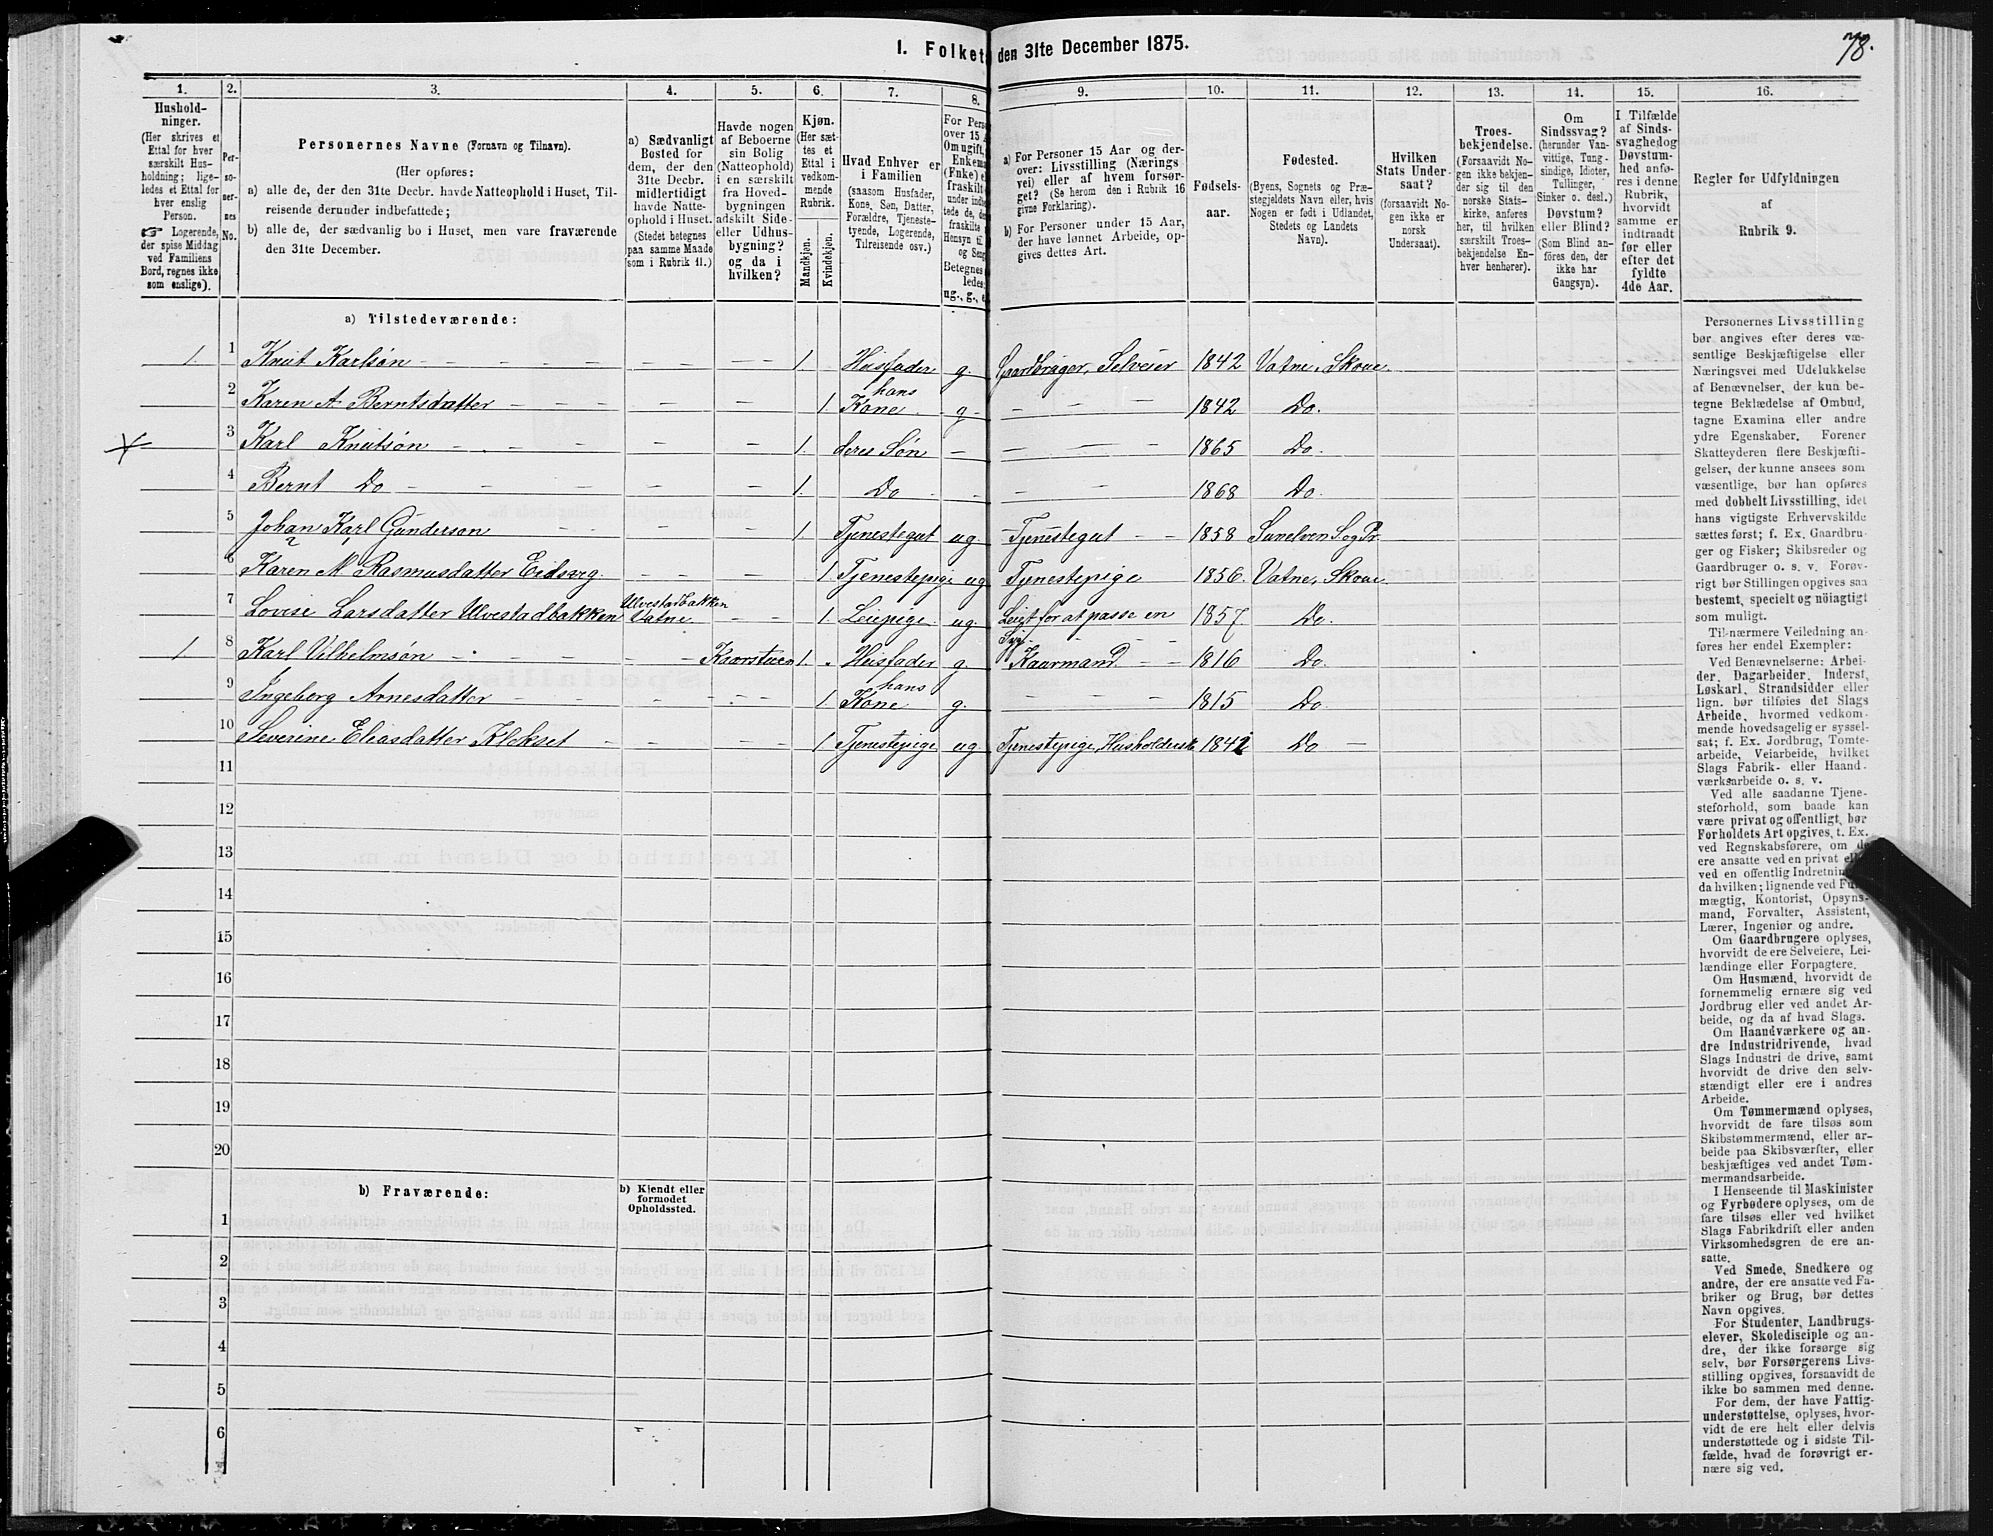 1. Folket den 31te December 1875.
78.
1. 2. 3. 4. 5. 6. 7. 8. 9. 10. 11. 12. 13. 14. 15. 16.
Hushold-
ninger.
(Her skrives et
Ettal for hver
særskilt Hus-
holdning; lige-
ledes et Ettal for
hver enslig
Person.
☞ Logerende,
der spise Middag
ved Familiens
Bord, regnes ikke
som enslige).
Per-
so-
ner-
nes
No.
Personernes Navne (Fornavn og Tilnavn).
(Her opføres:
a) alle de, der den 31te Decbr. havde Natteophold i Huset, Til-
reisende derunder indbefattede;
b) alle de, der sædvanlig bo i Huset, men vare fraværende
den 31te December.
a) Sædvanligt
Bosted for
dem, der den
31te Decbr.
midlertidigt
havde Natte-
ophold i Huset.
(Stedet betegnes
paa samme Maade
som i Rubrik 11.)
Havde nogen
af Beboerne
sin Bolig
(Natteophold)
i en særskilt
fra Hoved-
bygningen
adskilt Side-
eller Udhus-
bygning?
og da i
hvilken?
Kjøn.
(Her sæt-
tes et
Ettal i
vedkom-
mende
Rubrik.
Mandkjøn.
Kvindekjøn.
Hvad Enhver er
i Familien
(saasom Husfader,
Kone, Søn, Datter,
Forældre, Tjeneste-
tyende, Logerende,
Tilreisende osv.)
For Pers
over 15 A
Om ugift,
Enkema
(Enke) e
fraskilt
under indbe
tede de, de
fraskilte
Hensyn til
og Seng
Betegnes
ledes:
ug., g., e
a) For Personer 15 Aar og der-
over: Livsstilling (Nærings
vei) eller af hvem forsør-
get? (Se herom den i Rubrik 16
givne Forklaring).
b) For Personer under 15 Aar,
der have lønnet Arbeide, op-
gives dettes Art.
Fødsels-
aar.
Fødested.
(Byens, Sognets og Præ-
stegjeldets Navn eller, hvis
Nogen er født i Udlandet,
Stedets og Landets
Navn).
Hvilken
Stats Under-
saat?
(forsaavidt No-
gen ikke er
norsk
Undersaat).
Troes-
bekjendelse.
(Forsaavidt No-
gen ikke bekjen-
der sig til den
norske Stats-
kirke, anføres
her, til hvilken
særskilt Troes-
bekjendelse En-
hver henhører).
Om
Sindssvag?
(herunder Van-
vittige, Tung-
sindige, Idioter,
Tullinger,
Sinker o. desl.)
Døvstum?
eller Blind?
(Som Blind an-
føres den, der
ikke har
Gangsyn).
I Tilfælde
af Sinds-
svaghed og
Døvstum-
hed anfø-
res i denne
Rubrik,
hvorvidt
samme er
indtraadt
før eller
efter det
fyldte
4de Aar.
Regler for Udfyldningen
af
Rubrik 9.
a) Tilstedeværende:
1. 1 Knut Karlsøn 1. Husfader g. Gaardbruger, Selveier 1842 Vatne, Skoue
2 Karen A Berntsdatter 1. hans Kone g 1842 Do.
3 Karl Knutsøn 1. deres Søn 1865 Do.
4 Bernt Do 1. Do 1868 Do.
5 Johan Karl Gunderson 1. Tjenestegut ug Tjenestegut 1858 Sunelven S. og Pr.
6 Karen M Rasmusdatter Eidsvig. 1. Tjenestepige ug Tjenestepige 1856. Vatne, Skoue
7 Lovise Larsdatter Ulvestadbakken Ulvestadbakken Vatne 1. Leiepige ug. Leigt for at passe en Syg. 1857 Do.
1 8 Karl Vilhelmsøn Kaarstuen 1. Husfader g. Kaarmand 1816 Do.
9 Ingeborg Arnesdatter 1. hans Kone g. 1815 Do
10 Severine Eliasdatter Klokset 1 Tjenestepige ug Tjenestepige, Husholdersk 1842 Do
11
12
13
14
15
16
17
18
19
20
b) Fraværende:
b) Kjendt eller
formodet
Opholdssted.
1
2
3
4
5
6
Personernes Livsstilling
bør angives efter deres væ-
sentlige Beskjæftigelse eller
Næringsvei med Udelukkelse
af Benævnelser, der kun be-
tegne Beklædelse af Ombud,
tagne Examina eller andre
ydre Egenskaber. Forener
Skatteyderen flere Beskjæfti-
gelser, der kunne ansees som
væsentlige, bør han opføres
med dobbelt Livsstilling, idet
hans vigtigste Erhvervskilde
sættes først; f. Ex. Gaardbru-
ger og Fisker; Skibsreder og
Gaardbruger o. s. v. Forøv-
rigt bør Stillingen opgives saa
bestemt, specielt og nöiagtigt
som muligt.
Til nærmere Veiledning an-
føres her endel Exempler:
Ved Benævnelserne: Arbei-
der, Dagarbeider, Inderst,
Løskarl, Strandsidder eller
lign. bør tilføies det Slags
Arbeide, hvormed vedkom-
mende hovedsagelig er syssel-
sat; f. Ex. Jordbrug, Tomte-
arbeide, Veiarbeide, hvilket
Slags Fabrik- eller Haand-
værksarbeide o. s. v.
Ved alle saadanne Tjene-
steforhold, som baade kan
være privat og offentligt, bør
Forholdets Art opgives, t. Ex.
ved Regnskabsførere, om de
ere ansatte ved en privat el
ved en offentlig Indretnin
da hvilken; lignende ved Fu
mægtig, Kontorist, Opsyns-
mand, Forvalter, Assistent,
Lærer, Ingeniør og andre.
Om Gaardbrugere oplyses,
hvorvidt de ere Selveiere, Lei-
lændinge eller Forpagtere.
Om Husmænd, hvorvidt de
fornemmelig ernære sig ved
Jordbrug eller ved andet Ar-
beide, og da af hvad Slags.
Om Haandværkere og an-
dre Industridrivende, hvad
Slags Industri de drive, samt
hvorvidt de drive den selv-
stændigt eller ere i andres
Arbeide.
Om Tømmermænd oplyses,
hvorvidt de fare tilsøs som
Skibstømmermænd, eller ar-
beide paa Skibsværfter, eller
beskjæftiges ved andet Tøm-
mermandsarbeide.
I Henseende til Maskinister
og Fyrbødere oplyses, om de
fare tilsøs eller ved hvilket
Slags Fabrikdrift eller anden
Virksomhedsgren de ere an-
satte.
Ved Smede, Snedkere og
andre, der ere ansatte ved Fa-
briker og Brug, bør dettes
Navn opgives.
For Studenter, Landbrugs-
elever, Skoledisciple og an-
dre, der ikke forsørge sig
selv, bør Forsørgerens Livs-
stilling opgives, forsaavidt de
ikke bo sammen med denne.
For dem, der have Fattig-
understøttelse, oplyses, hvor-
vidt de ere helt eller delvis
understøttede og i sidste Til-
fælde, hvad de forøvrigt er-
nære sig ved.